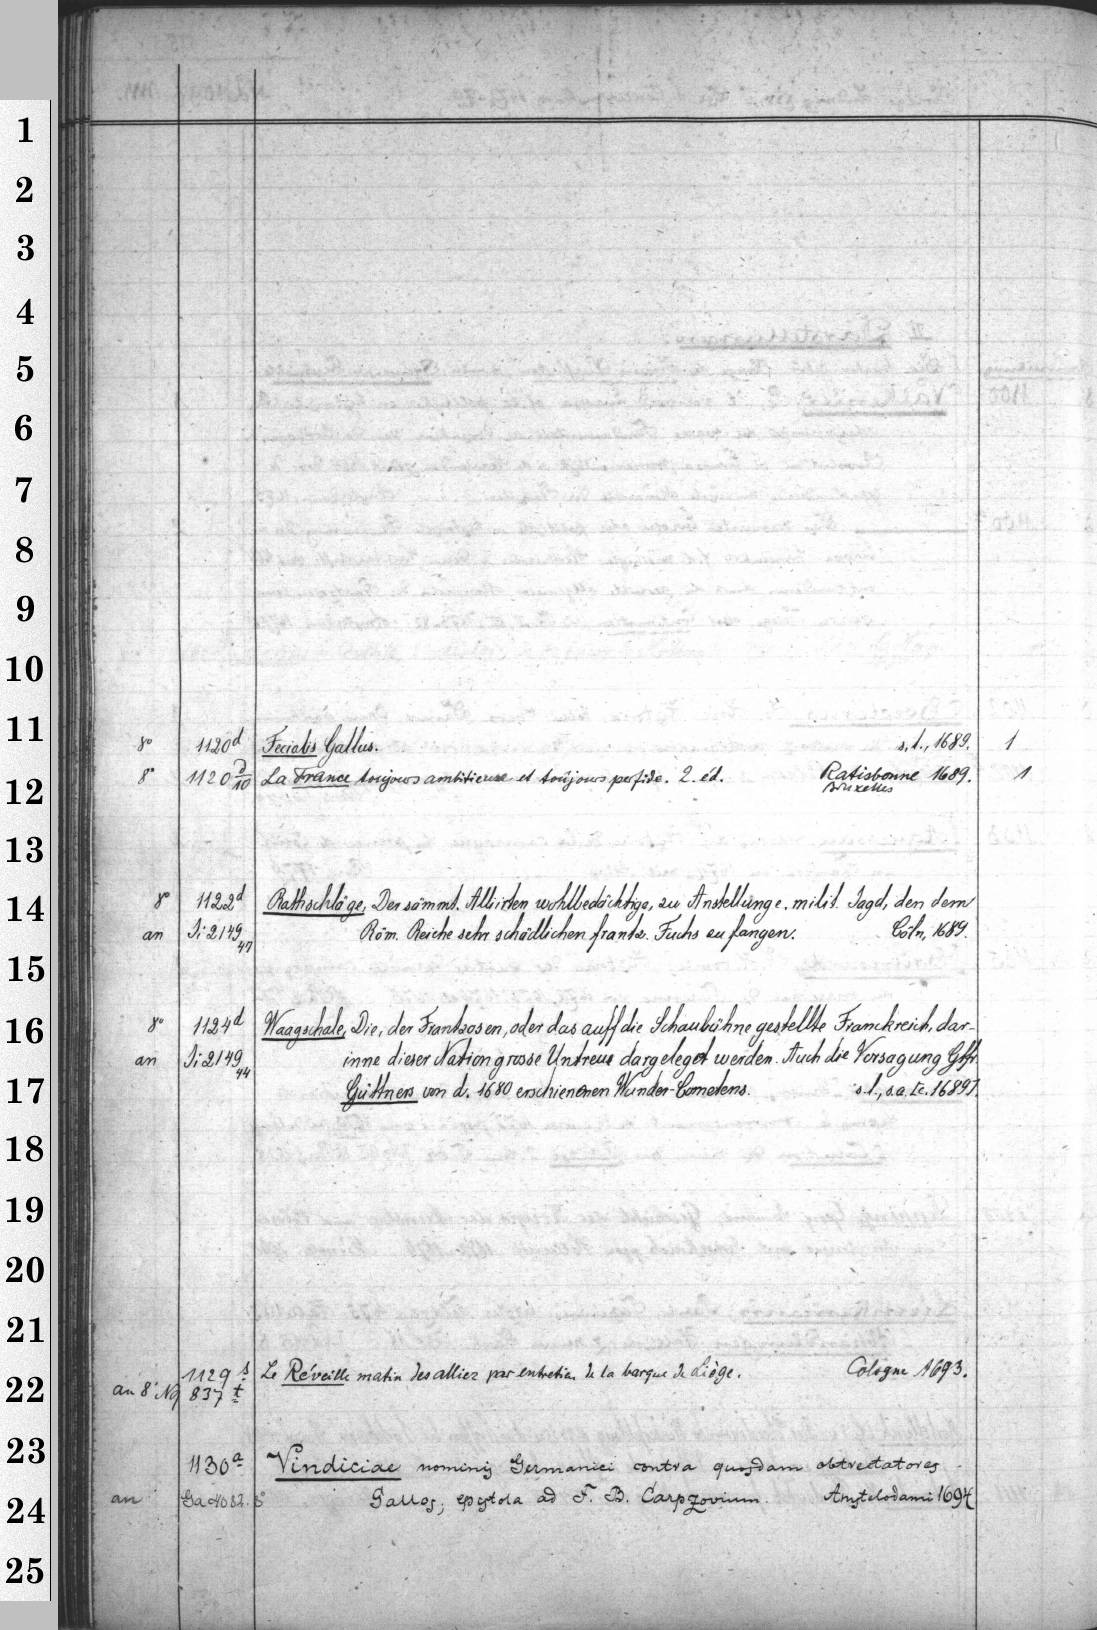 1
2
3
4
5
6
7
8
9
10
11
8° 1120d Fecialis Gallus. s.l., 1689. 1
8° 1120 d/10 La France toujours ambitieuse et toujours perfide. 2. éd. Ratisbonne 1689. 1
Bruxelles
12
13
14
8° 1122d Rathschläge, Der sämmt. Alliirten wohlbedächtige, zu Anstellunge. milit. Jagd, den dem
an Ti 2149 47 Röm. Reiche sehr schädlichen frantz. Fuchs zu fangen. Cöln, 1689.
15
16
8° 1124d Waagschale, Die, der Frantzosen, oder das auff die Schaubühne gestellte Franckreich, dar-
an Ti 2149 44 inne dieser Nation grosse Untreue dargeleget werden. Auch die Vorsagung Gfr.
17
Güttners von d. 1680 erschienenen Wunder-Cometens. s.l., s.a. [c. 1689].
18
19
20
21
1129 s Le Réveille matin des alliez par entretien de la barque de Liège. Cologne 1693.
22
an 8° Nq 837 t
23
1130a Vindiciae nominis Germanici contra quosdam obtrectatores
24
an Ga 4082. 8° Gallos; epistola ad F. B. Carpzovium. Amstelodami 1694
25